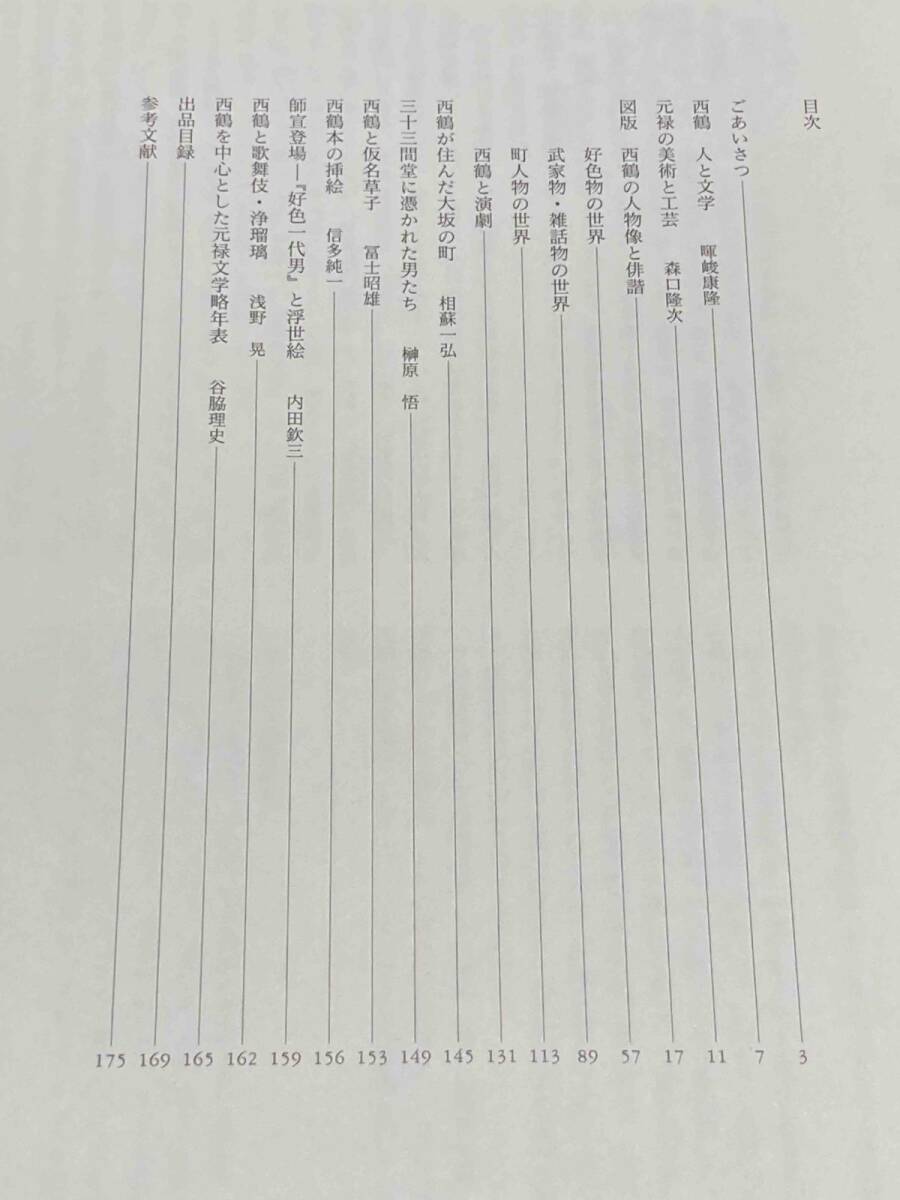 目次
ごあいさつ 3
西鶴 人と文学 暉峻康隆 7
元禄の美術と工芸 森口隆次 11
図版 西鶴の人物像と俳諧 17
好色物の世界 57
武家物・雑話物の世界 89
町人物の世界 113
西鶴と演劇 131
西鶴が住んだ大坂の町 相蘇一弘 145
三十三間堂に憑かれた男たち 榊原 悟 149
西鶴と仮名草子 冨士昭雄 153
西鶴本の挿絵 信多純一 156
師宣登場―『好色一代男』と浮世絵 内田欽三 159
西鶴と歌舞伎・浄瑠璃 浅野 晃 162
西鶴を中心とした元禄文学略年表 谷脇理史 165
出品目録 169
参考文献 175